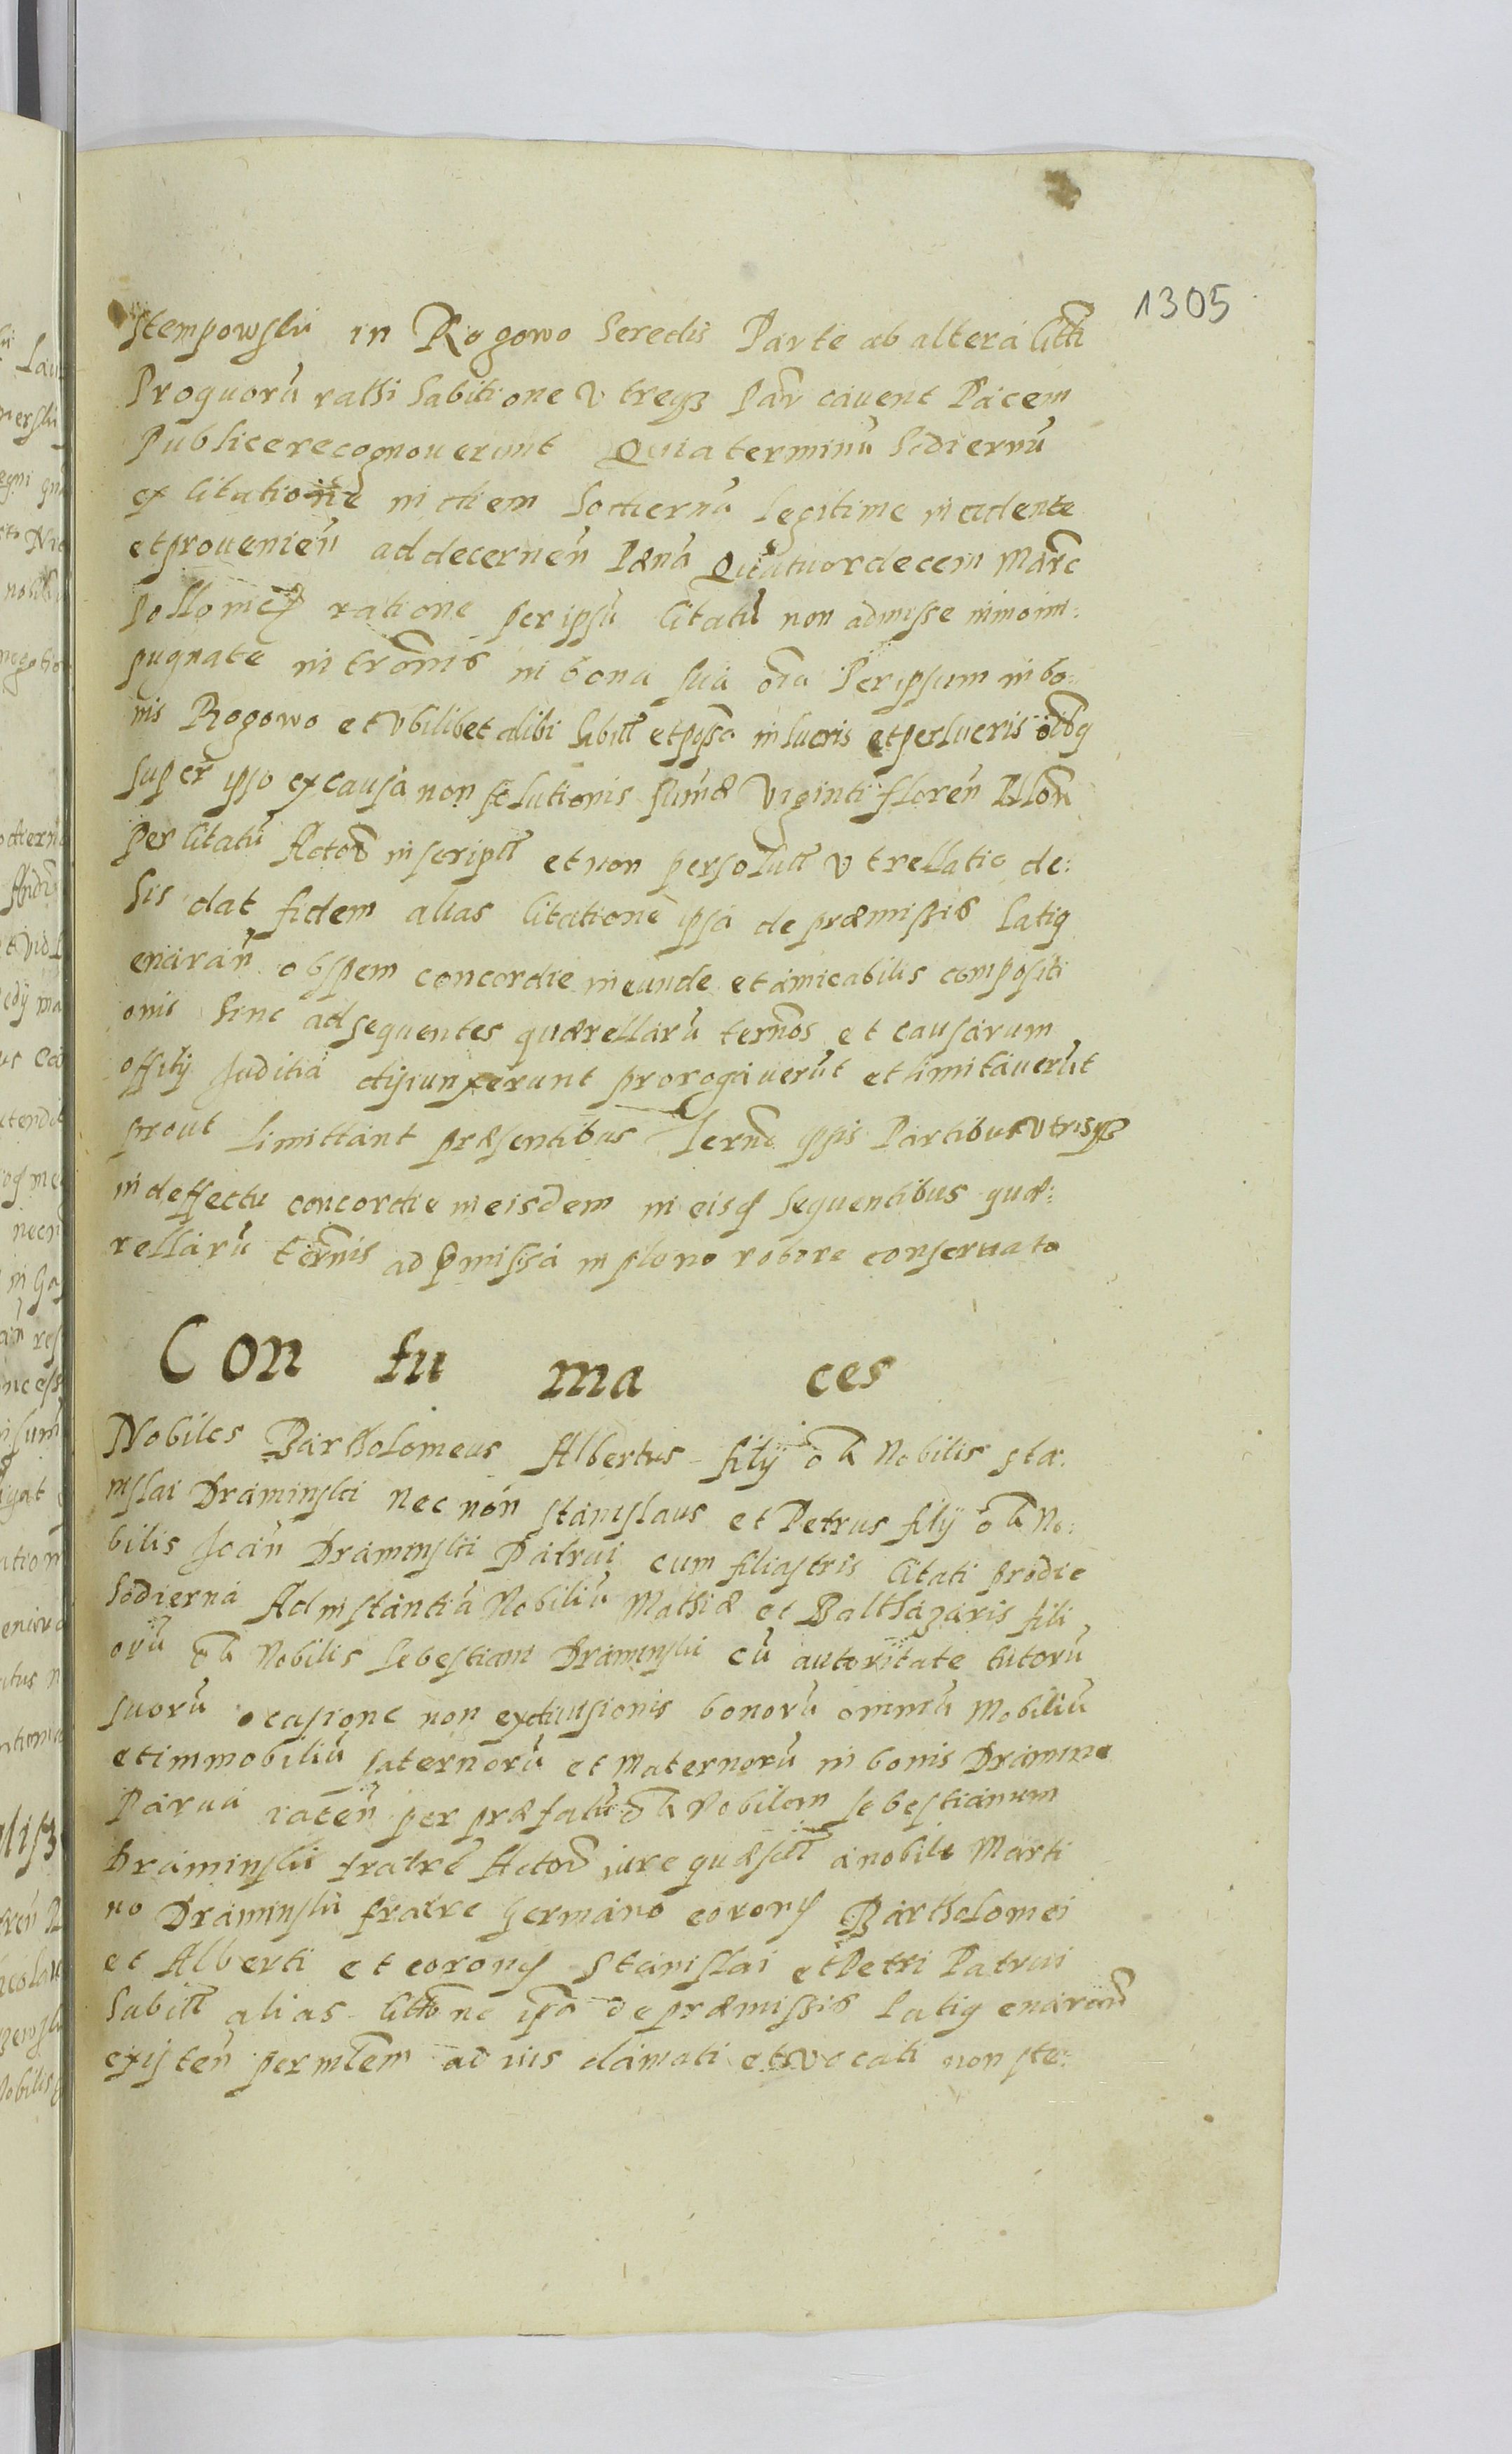 1305
Stempowski in Rogowo heredis Parte ab altera Citti
Pro quorū rathi habitione vtreqꝫ Par̄ cavent Pacem
Publice recognoverunt Quia terminū hodiernū
ex Citatione in diem hodiernū legitime incidente
et provenien̄ ad decernen̄ Pænā Quatuordecem Marc̄
Pollonicꝭ ratione per ipsū Citatū non admisse immo im:
pugnate intromis̄ in bona sua oīa Per ipsum in bo:
nis Rogowo et vbilibet alibi habitt et possa in lucris et perlucris oībꝫ
super ipso ex causa non solutionis sumæ Viginti floren̄ Pllon̄
per Citatū Actor̄ inscriptt et non persolutt vt rellatio de:
his dat fidem alias Citatione ipsa de præmissis latiꝫ
enarran̄ ob spem concordie ineunde et amicabilis compositi
onis hinc ad sequentes quærellarū ternos et causarum
offitij Juditia dijunxerunt prorogaverūt et limitaverūt
prout limittant præsentibus Terno ipsis Partibus vtrisqꝫ
in deffectu concordie in eisdem in eisꝭ sequentibus quæ:
rellarū ternis ad pmissa in pleno robore conservato
Con tu ma ces
Nobiles Bartholomeus Albertus filij oli Nobilis Sta:
nislai Draminski nec non Stanislaus et Petrus filij oli No:
bilis Joan̄ Draminskii Patrui cum filiastris Citati pro die
hodierna Ad instantiā Nobiliū Mathiæ et Balthazaris fili
orū oli Nobilis Sebestiani Draminski cū autoritate tutorū
suorū ocasione non exdivisionis bonorū omniū Mobiliū
et immobiliū paternorū et maternorū in bonis Dramino
Parva iacen̄ per præfatū oli Nobilem Sebestianum
Draminski fratrē Actor̄ iure quæsitt a nobile Marti
no Draminski fratre germano eoronꝭ Bartholomei
et Alberti et eoronꝭ Stanislai et Petri Patrui
habitt alias Cittōne ipsa de præmissis latiꝫ enarran̄
existen̄ per mlem ad ius clamati et vocati non ste: